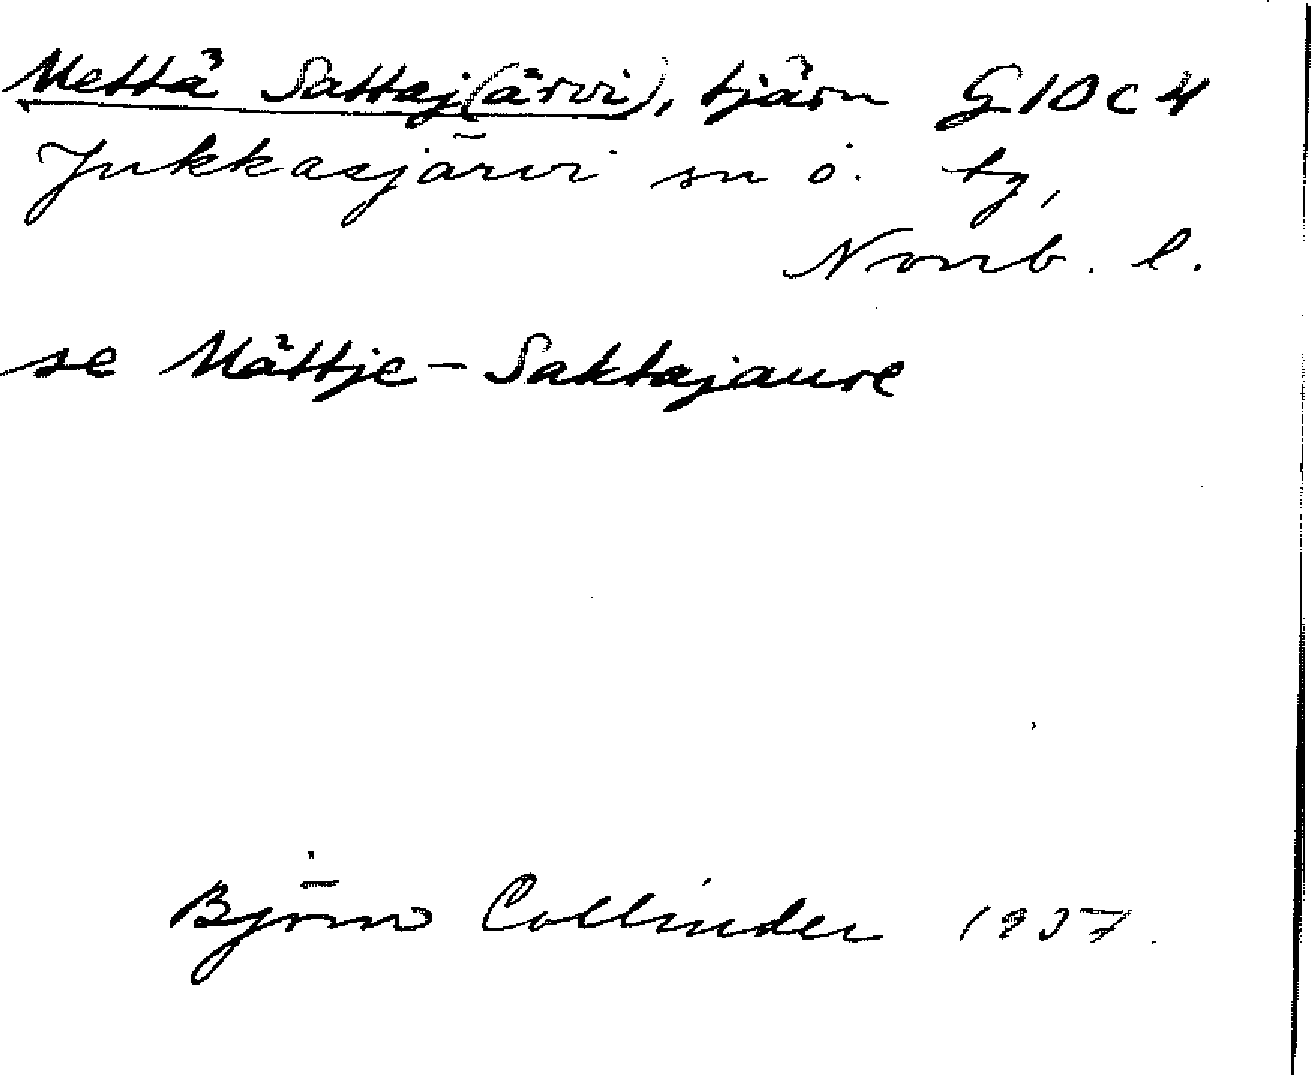 Mettä Sattaj(ärvi), tjärn G10c4
Jukkasjärvi sn o. tg,
Norrb. l.
se Mättje-Saktajaure
Björn Collinder 1937.